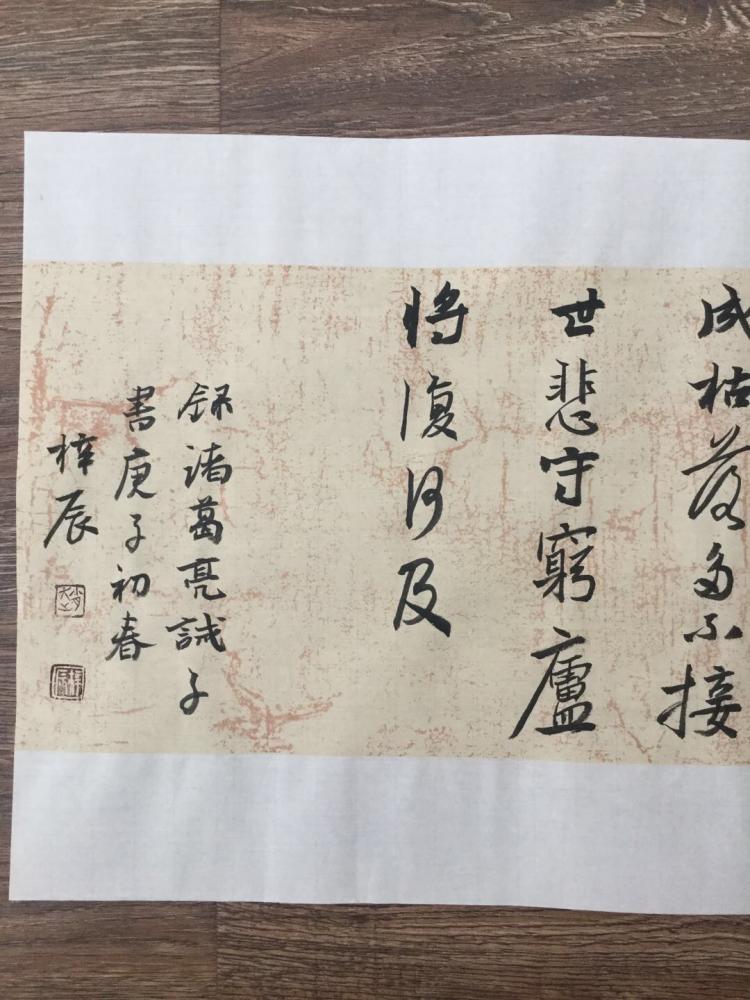 成枯落多不接
世悲守窮廬
將復何及
録諸葛亮誡子
書庚子初春
梓辰